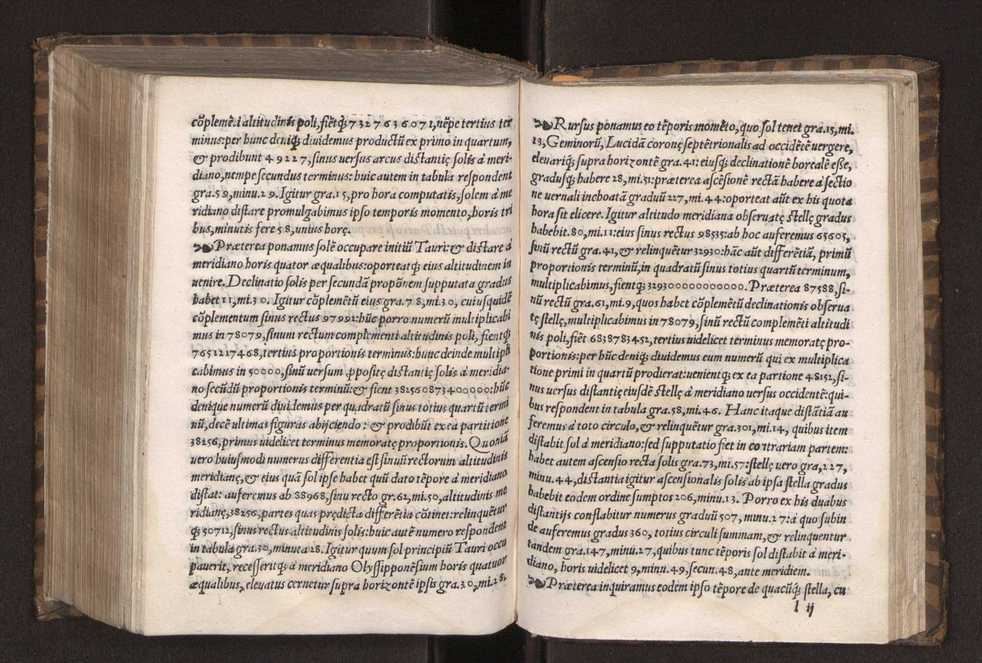 cõplemẽti altitudinis poli, fiẽtq́; 7327636071, nẽpe tertius ter
minus: per hunc deniq́; diuidemus productũ ex primo in quartum,
& prodibunt 49227, sinus uersus arcus distãtię solis à meri-
diano, nempe secundus terminus: huic autem in tabula respondent
gra. 59, minu. 29. Igitur gra. 15, pro hora computatis, solem à me
ridiano distare promulgabimus ipso temporis momento, horis tri
bus, minutis fere 58, unius horę.
Præterea ponamus solẽ occupare initiũ Tauri: & distare à
meridiano horis quatuor æqualibus: oporteatq́; eius altitudinem in
uenire. Declinatio solis per secundã propõnem supputata gradus
habet 11, mi. 30. Igitur cõplemẽtũ eius gra. 78, mi. 30, cuius quidẽ
cõplementum sinus rectus 97992: hũc porro numerũ multiplicabi
mus in 78079, sinum rectum complementi altitudinis poli, fientq́;
7651217468, tertius proportionis terminus: hunc deinde multipli
cabimus in 50000, sinũ uersum ꝓpositę distãtię solis à meridia-
no secũdũ proportionis terminũ: & fient 382560873400000: hũc
denique numerũ diuidemus per quadratũ sinus totius quartũ termi
nũ, decẽ ultimas figuras abijciendo: & prodibũt ex ea partitione
38256, primus uidelicet terminus memoratę proportionis. Quoniã
uero huiusmodi numerus differentia est sinuũ rectorum altitudinis
meridianę, & eius quã sol ipse habet quũ dato tẽpore à meridiano
distat: auferemus ab 88968, sinu recto gr. 62, mi. 50, altitudinis me
ridianę, 38256, partes quas prędicta differẽtia cõtinet: relinquẽtur
q́; 50712, sinus rectus altitudinis solis: huic autem numero respondent
in tabula gra. 30, minuta 28. Igitur quum sol principiũ Tauri occu
pauerit, recesseritq́; à meridiano Olyssipponẽsium horis quatuor
æqualibus, eleuatus cernetur supra horizontẽ ipsis gra. 30, mi. 28.
Rursus ponamus eo tẽporis momẽto, quo sol tenet gra. 15, mi.
13, Geminorũ, Lucidã coronę septẽtrionalis ad occidẽtẽ uergere,
eleuariq́; supra horizontẽ gra. 41: eiusq́; declinationẽ borealẽ esse,
gradusq́; habere 28, mi. 51: præterea ascẽsionẽ rectã habere à sectio
ne uernali inchoatã graduũ 227, mi. 44: oporteat aũt ex his quota
hora sit elicere. Igitur altitudo meridiana obseruatę stellę gradus
habebit. 80, mi. 12: eius sinus rectus 98535: ab hoc auferemus 65605,
sinũ rectũ gra. 41, & relinquẽtur 32930: hãc aũt differẽtiã, primũ
proportionis terminũ, in quadratũ sinus totius quartũ terminum,
multiplicabimus, fientq́; 329300000000000. Præterea 87588, si-
nũ rectũ gra. 61, mi. 9, quos habet cõplemẽtũ declinationis obserua
tę stellę, multiplicabimus in 78079, sinũ rectũ complemẽti altitudi
nis poli, fiẽt 6838783452, tertius uidelicet terminus memoratę pro-
portionis: per hũc deniq́; diuidemus eum numerũ qui ex multiplica
tione primi in quartũ prodierat: uenientq́; ex ea partione 48152, si-
nus uersus distantię eiusdẽ stellę à meridiano uersus occidentẽ: qui-
bus respondent in tabula gra. 58, mi. 46. Hanc itaque distãtiã au
feremus à toto circulo, & relinquẽtur gra. 301, mi. 14, quibus item
distabit sol à meridiano: sed supputatio fiet in cõtrariam partem:
habet autem ascensio recta solis gra. 73, mi. 57: stellę uero gra, 227,
minu. 44, distantia igitur ascensionalis solis ab ipsa stella gradus
habebit eodem ordine sumptos 206, minu. 13. Porro ex his duabus
distantijs constabitur numerus graduũ 507, minu. 27: à quo subin
de auferemus gradus 360, totius circuli summam, & relinquentur
tandem gra. 147, minu. 27, quibus tunc tẽporis sol distabit à meri-
diano, horis uidelicet 9, minu. 49, secun. 48, ante meridiem.
Præterea inquiramus eodem ipso tẽpore de quacũq́; stella, cu
l ij